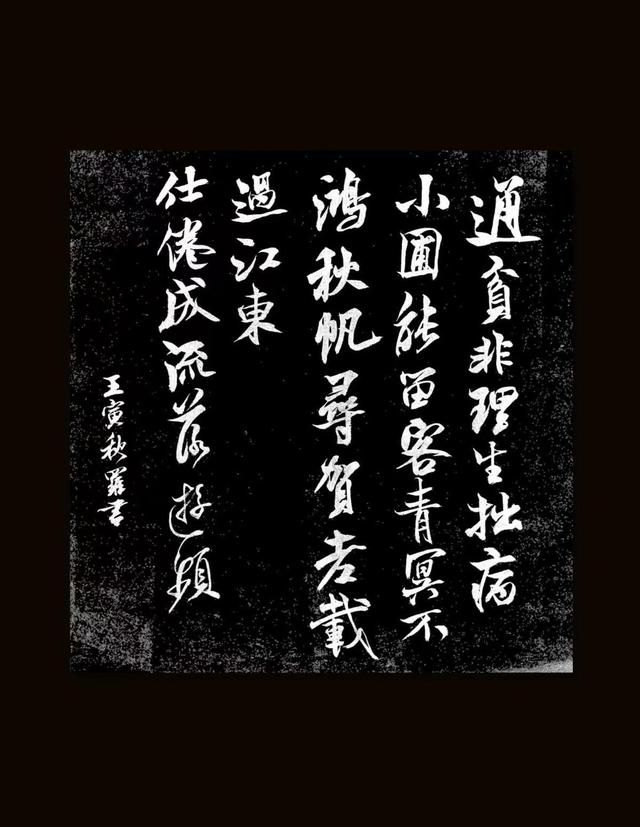 通貧非理生拙病
小圃能留客青冥不
鴻秋帆尋賀老載
過江東
仕倦成流落遊頻
壬寅秋羅書